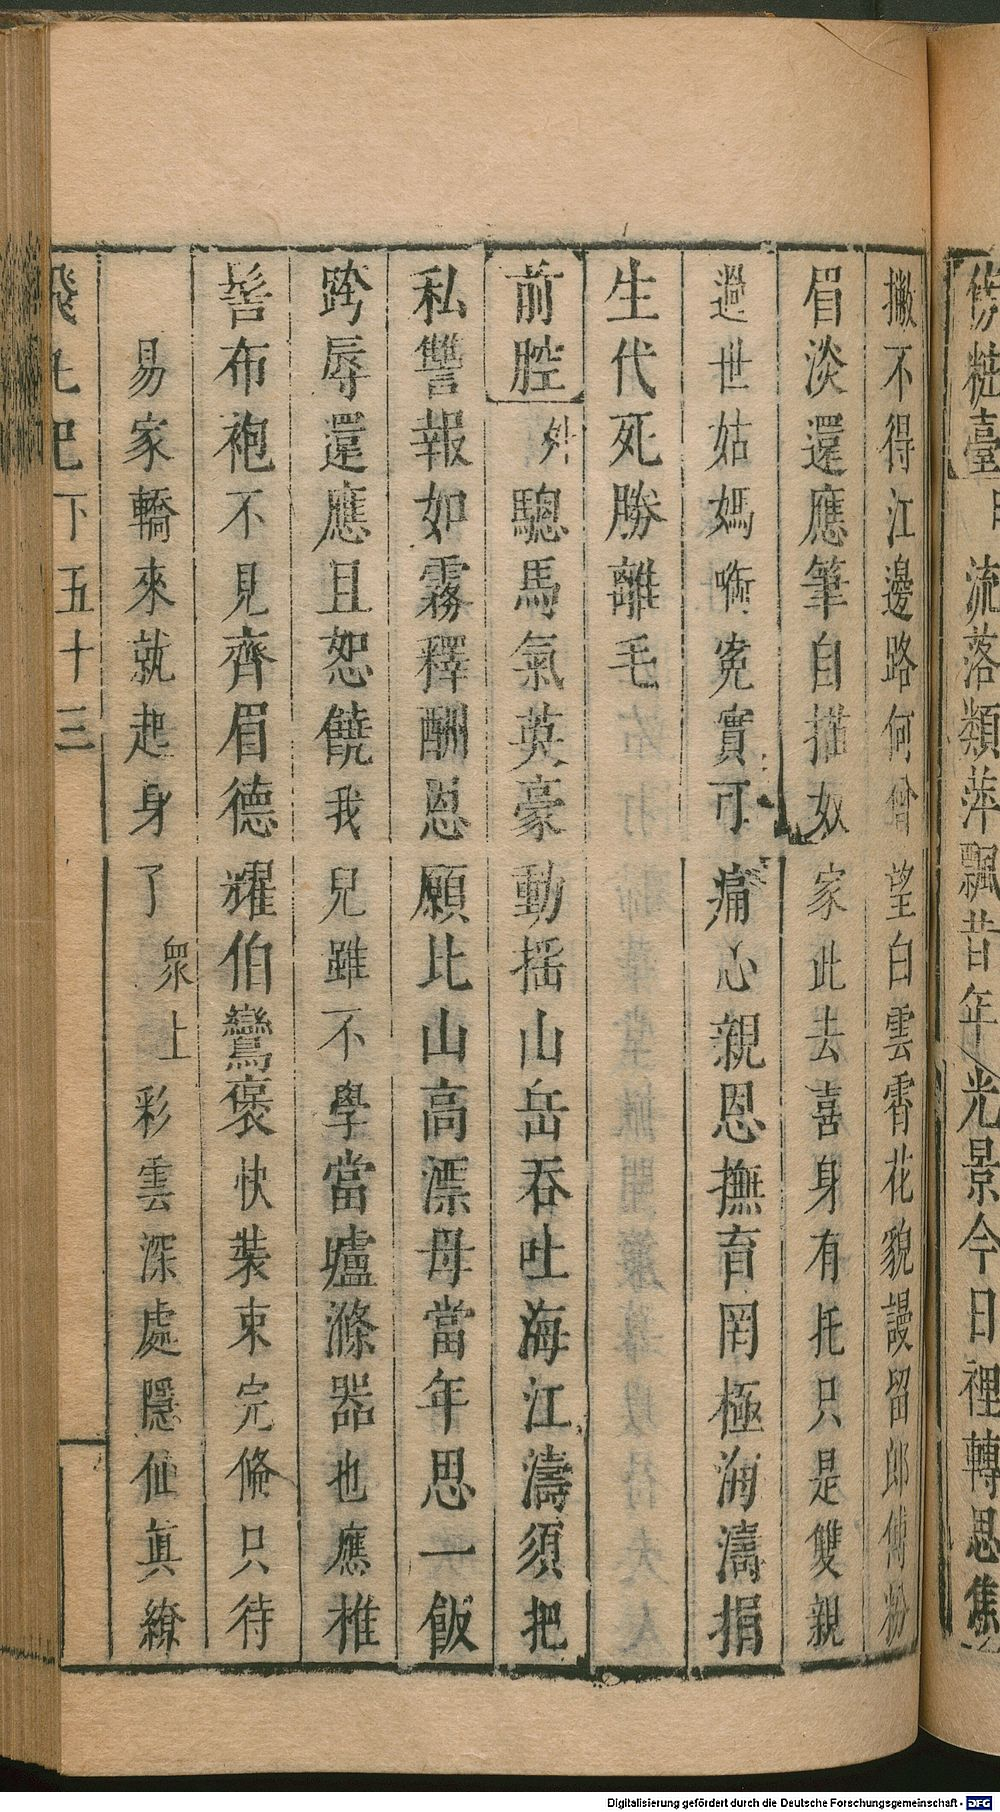 傍粧臺 旦 流落類萍飄昔年光景今日裡轉思焦
撇不得江邊路何曾望白雲霄花貌謾留郎傅粉
眉淡還應筆自描奴家此去喜身有托只是雙親
過世姑媽啣寃實可痛心親恩撫育罔極海濤捐
生代死勝離毛
前腔 外 驄馬氣英豪動搖山岳吞吐海江濤須把
私讐報如霧釋酬恩願比山高漂母當年思一飯
跨辱還應且恕饒我兒雖不學當壚滌器也應椎
髻布袍不見齊眉德耀伯鸞褒快裝束完俻只待
易家轎來就起身了 衆上 彩雲深處隱仙眞繚
下五十三
Digitalisierung gefördert durch die Deutsche Forschungsgemeinschaft - DFG